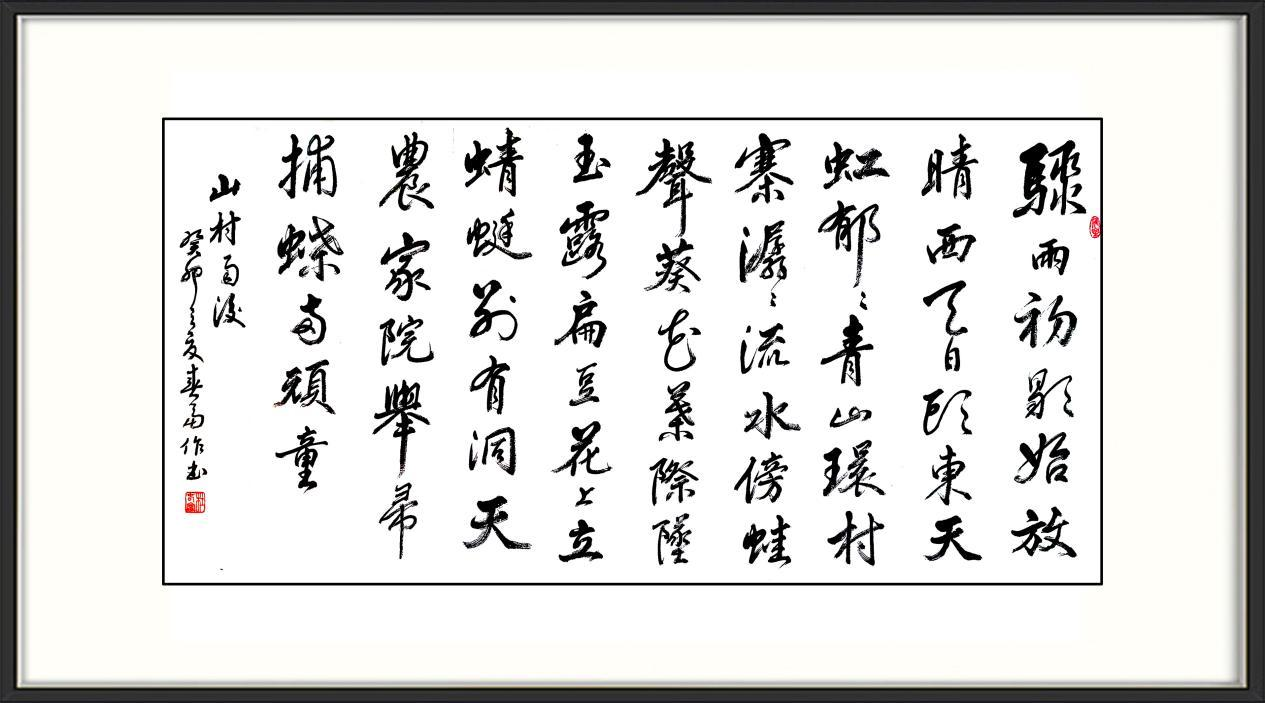 驟雨初歇始放
晴西天日頭東天
虹郁〻青山環村
寨潺〻流水傍蛙
聲葵花葉際墜
玉露扁豆花上立
蜻蜓別有洞天
農家院舉帚
捕蝶兩頑童
山村雨後
癸卯之夏春雨作书